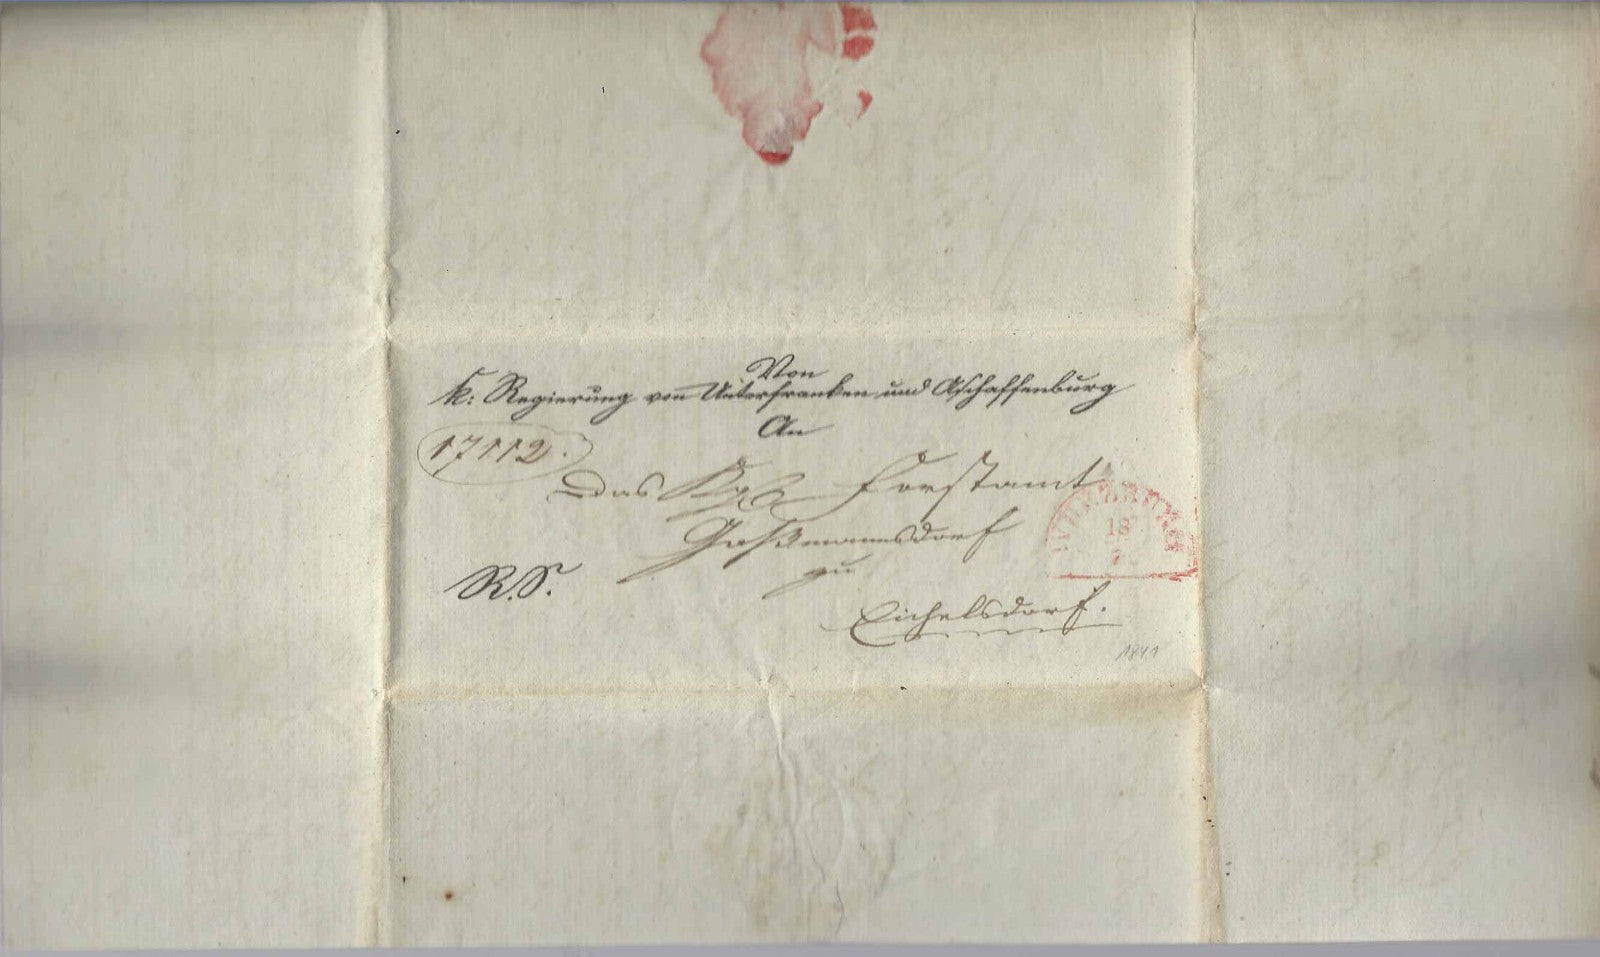 Von
k: Regierung von Unterfranken und Aschaffenburg
An
17112.
Das Kgl. Forstamt
Goßmannsdorf
zu
R.S.
Eichelsdorf.
WÜRZBURG
18
1841